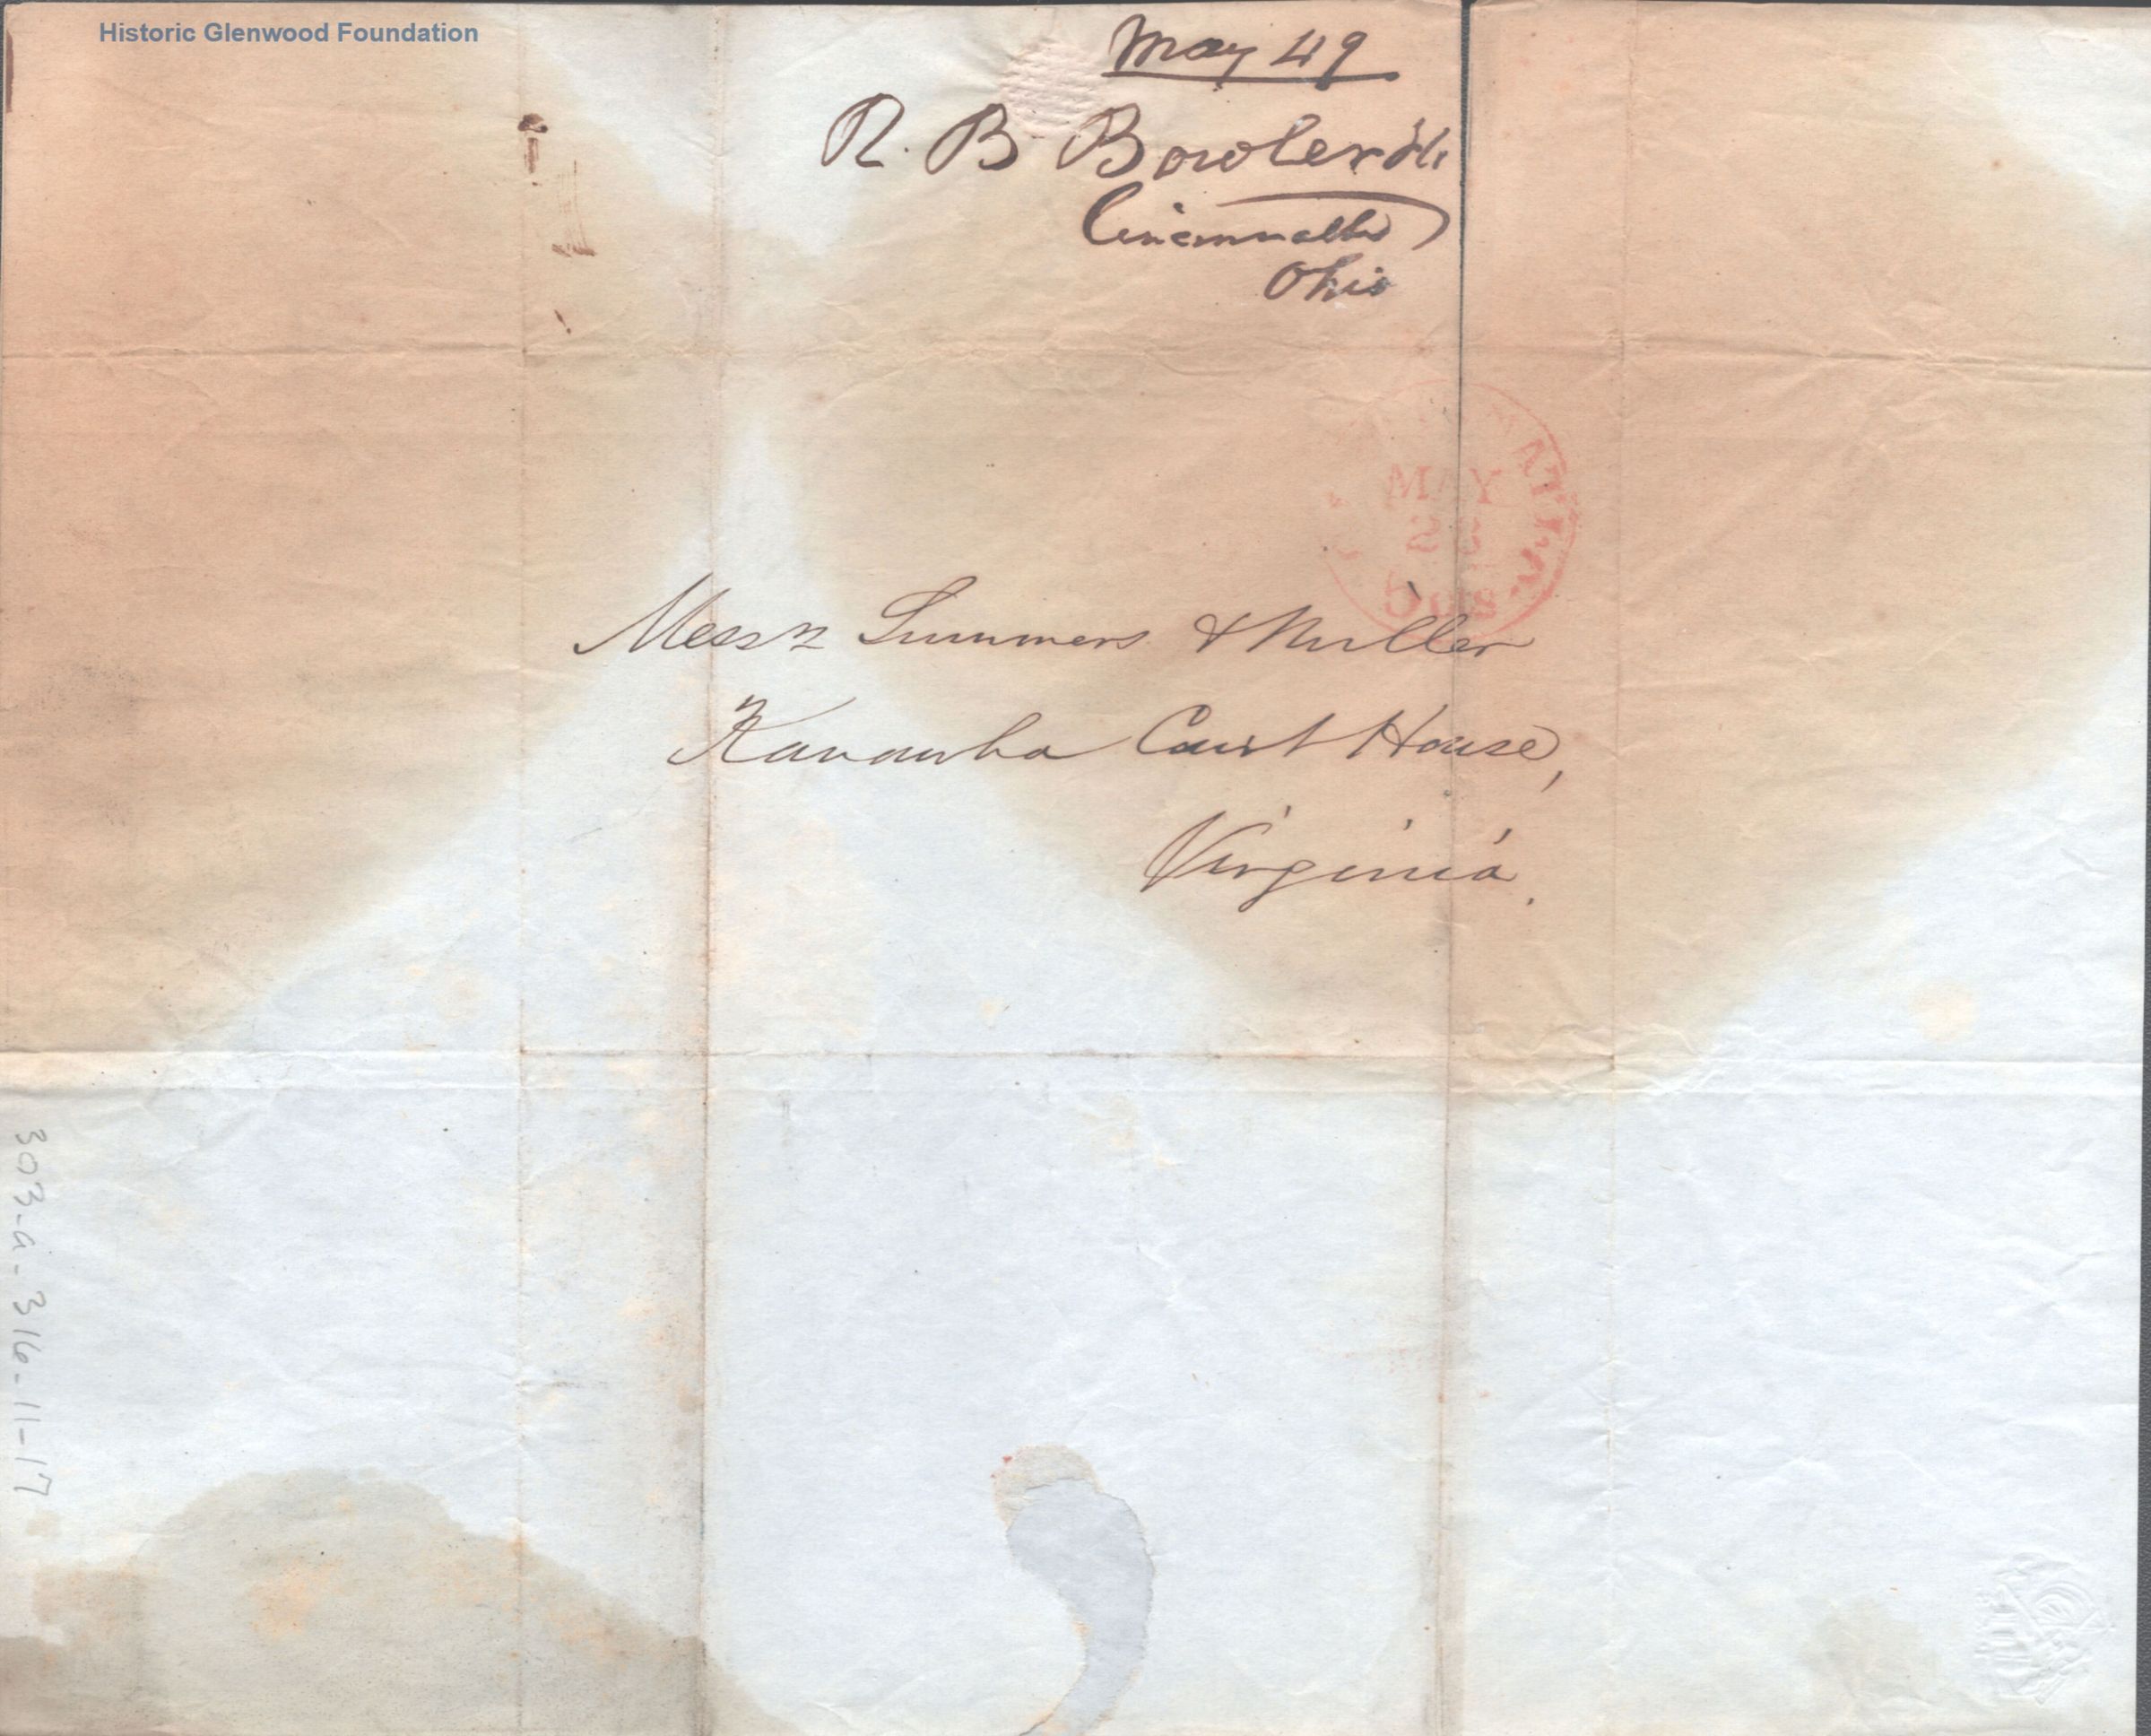 Historic Glenwood Foundation
May 49
R. B Bowler
Cincinnatti
Ohio
MAY
5 cts
Messrs Summers & Miller
Kanawha Court House,
Virginia.
303-a-316-11-17